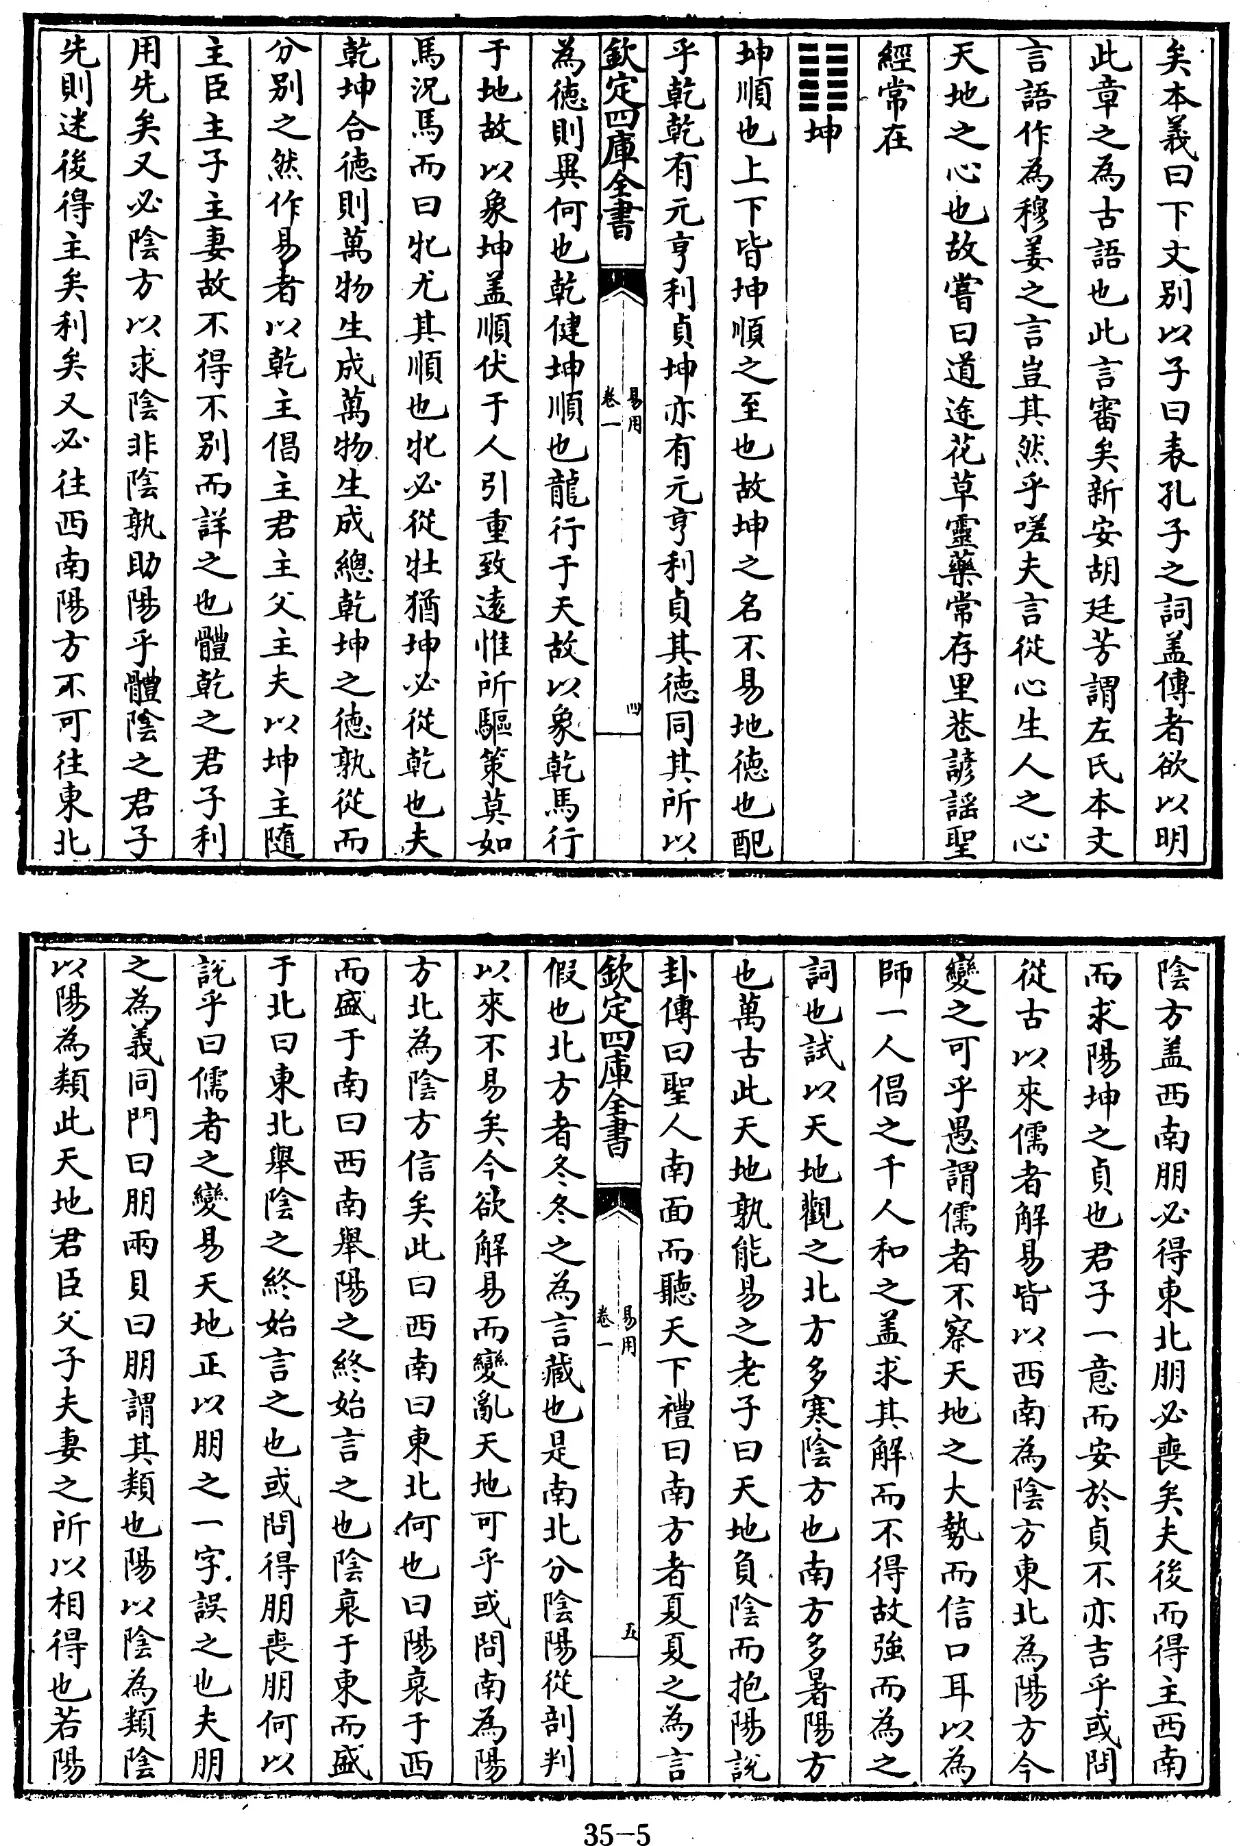 矣本義曰下文别以子曰表孔子之詞盖傳者欲以明
此章之為古語也此言審矣新安胡廷芳謂左氏本文
言語作為穆姜之言豈其然乎嗟夫言從心生人之心
天地之心也故嘗曰道途花草靈藥常存里巷諺謡聖
經常在
䷁坤
坤順也上下皆坤順之至也故坤之名不易地徳也配
乎乾乾有元亨利貞坤亦有元亨利貞其徳同其所以
欽定四庫全書
易用
卷一
四
為徳則異何也乾健坤順也龍行于天故以象乾馬行
于地故以象坤盖順伏于人引重致逺惟所驅策莫如
馬況馬而曰牝尤其順也牝必從牡猶坤必從乾也夫
乾坤合徳則萬物生成萬物生成總乾坤之徳孰從而
分别之然作易者以乾主倡主君主父主夫以坤主隨
主臣主子主妻故不得不别而詳之也體乾之君子利
用先矣又必陰方以求陰非陰孰助陽乎體陰之君子
先則迷後得主矣利矣又必往西南陽方不可往東北
陰方盖西南朋必得東北朋必喪矣夫後而得主西南
而求陽坤之貞也君子一意而安於貞不亦吉乎或問
從古以來儒者解易皆以西南為陰方東北為陽方今
變之可乎愚謂儒者不察天地之大勢而信口耳以為
師一人倡之千人和之盖求其解而不得故強而為之
詞也試以天地觀之北方多寒陰方也南方多暑陽方
也萬古此天地孰能易之老子曰天地負陰而抱陽説
卦傳曰聖人南面而聽天下禮曰南方者夏夏之為言
欽定四庫全書
易用
卷一
五
假也北方者冬冬之為言藏也是南北分陰陽從剖判
以來不易矣今欲解易而變亂天地可乎或問南為陽
方北為陰方信矣此曰西南曰東北何也曰陽衰于西
而盛于南曰西南舉陽之終始言之也陰衰于東而盛
于北曰東北舉陰之終始言之也或問得朋喪朋何以
説乎曰儒者之變易天地正以朋之一字誤之也夫朋
之為義同門曰朋兩貝曰朋謂其類也陽以陰為類陰
以陽為類此天地君臣父子夫妻之所以相得也若陽
35-5